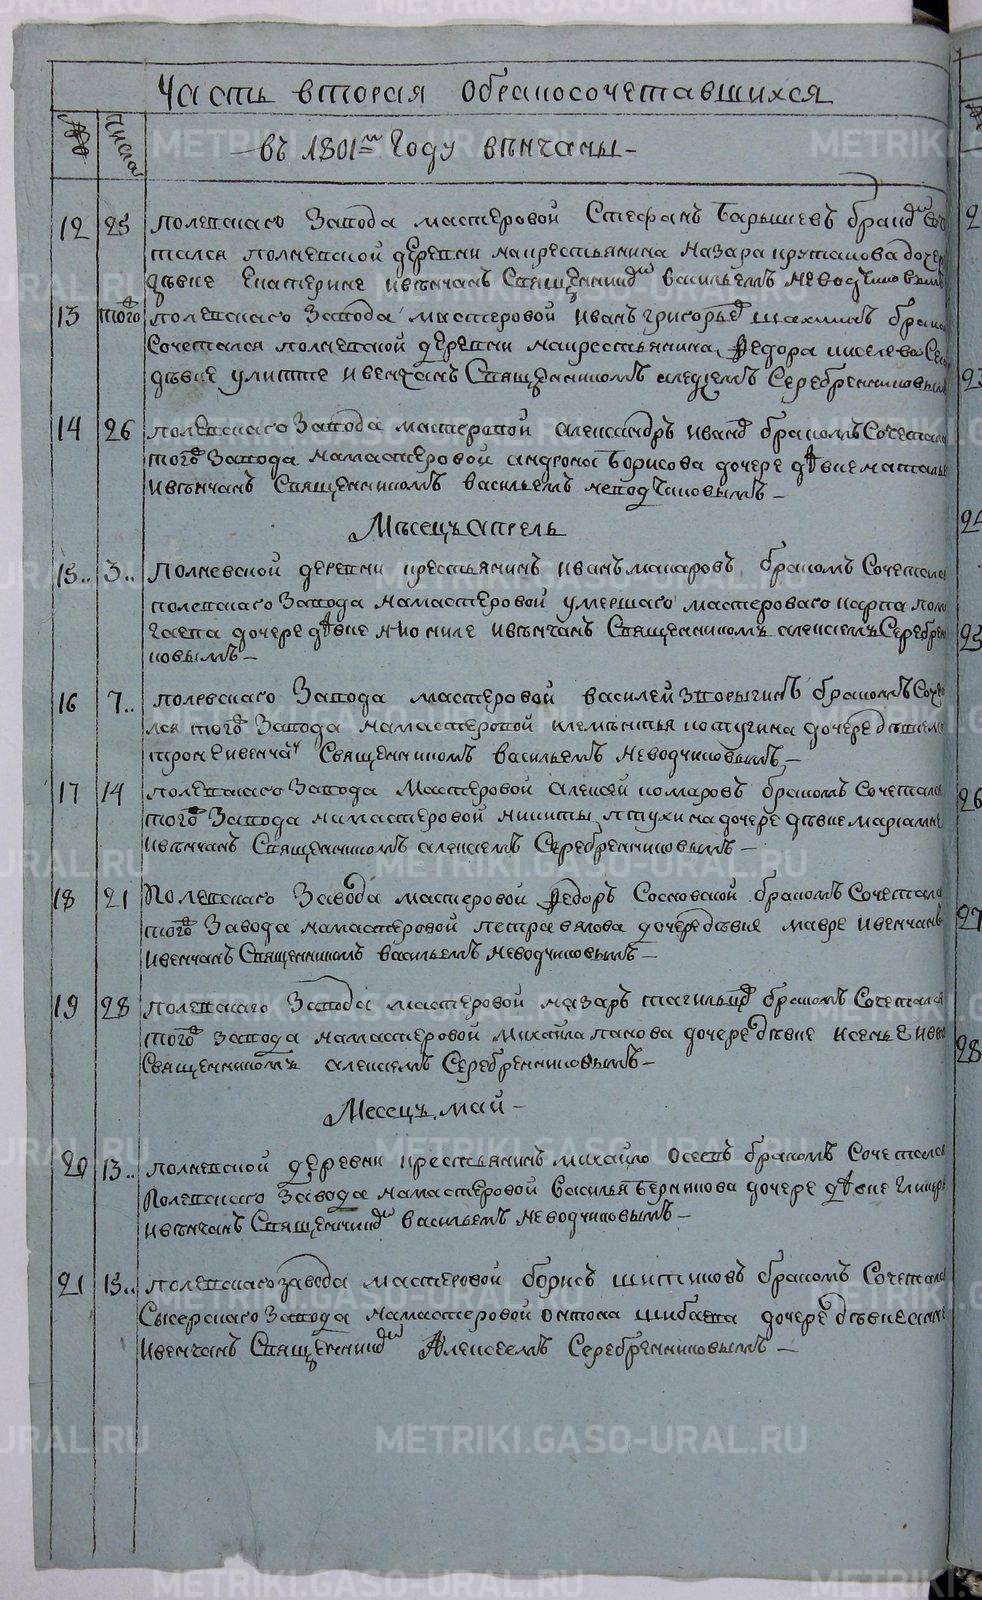 Часть вторая обракосочетавшихся
№ Числа
въ 1801м Году венчаны
12 25 полевскаго Завода мастеровой Стефанъ Барышевъ
тался полневской деревни накрестьянина Назара крутакова дочере
дѣвке Екатерине ивѣнчанъ Священникомъ васильемъ неводчиковымъ
13 того полевскаго Завода мастеровой иванъ григорьевъ шахминъ брако
Сочетался полневской деревни накрестьянина Федора киселева
дѣвке улитте ивенчанъ Священникомъ алексеемъ Серебренниковым
14 26 полевскаго Завода мастеровой александръ ивановъ бракомъ Сочетал
того Завода намастеровой андрона Борисова дочере дѣвке наталье
ивѣнчанъ Священникомъ васильемъ неводчиковымъ
Месецъ апрель
15.. 3.. Полневской деревни крестьянинъ иванъ макаровъ бракомъ Сочетался
полевскаго Завода намастеровой умершаго мастероваго карпа
дочере дѣвке ивѣнчанъ Священникомъ алексеемъ Серебрен
ковымъ
16 7.. полевскаго Завода мастеровой василей бракомъ Соче
лся того Завода намастеровой клементья котугина дочере дѣвке
ивенча Священникомъ васильемъ неводчиковымъ
17 14 полевскаго Завода Мастеровой алексей комаровъ бракомъ Сочетался
того Завода намастеровой никиты птухина дочере дѣвке мариамне
ивѣнчанъ Священникомъ алексеемъ Серебренниковымъ
18 21 Полевскаго Завода мастеровой Федоръ Сосновской бракомъ Сочетался
того Завода намастеровой петра вялова дочере дѣвке мавре ивенчанъ
ивенчанъ Священникомъ васильемъ неводчиковымъ
19 28 полевскаго Завода мастеровой назаръ тагильцовъ бракомъ Сочетался
того Завода намастеровой Михайла панова дочере дѣвке ксенье
Священникомъ алексеемъ Серебренниковымъ
Месецъ май
20 13.. полневской деревни крестьянинъ михайло осевъ бракомъ Сочетался
Полевскаго Завода намастеровой василья берникова дочере дѣвке
ивѣнчанъ Священникомъ васильемъ неводчиковымъ
21 15.. полевскаго завода мастеровой борисъ шитиковъ бракомъ Сочетался
Сысерскаго Завода намастеровой онтона шибаева дочере дѣвке
ивенчанъ Священникомъ Алексеемъ Серебренниковымъ
METRIKI.GASO-URAL.RU